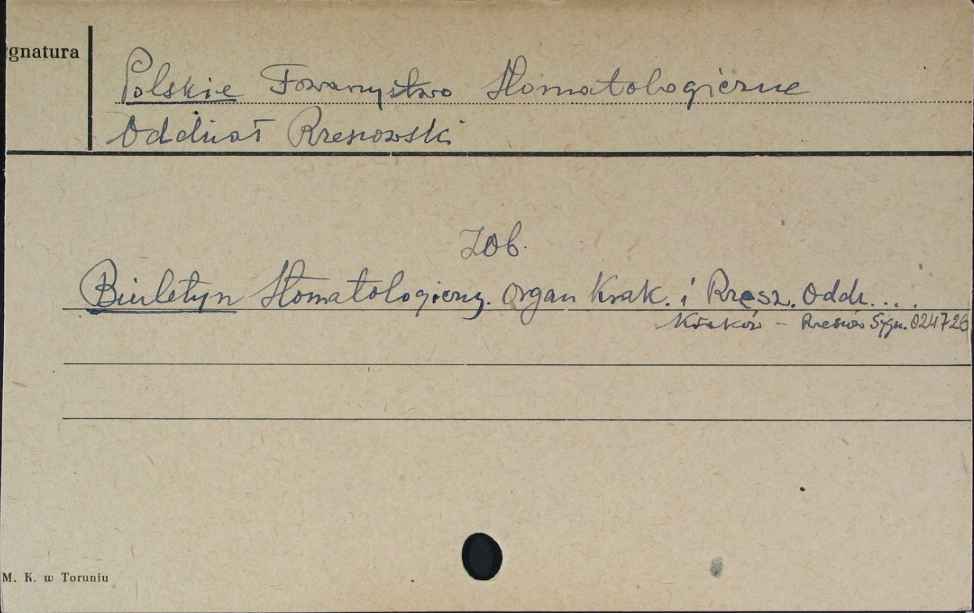 gnatura
Polskie Towarzystwo Stomatologiczne
Oddział Rzeszowski
Zob.
Biuletyn Stomatologiczny. Organ Krak. i Rzesz. Oddz....
Kraków - Rzeszów Sygn. 024726
M. K. w Toruniu